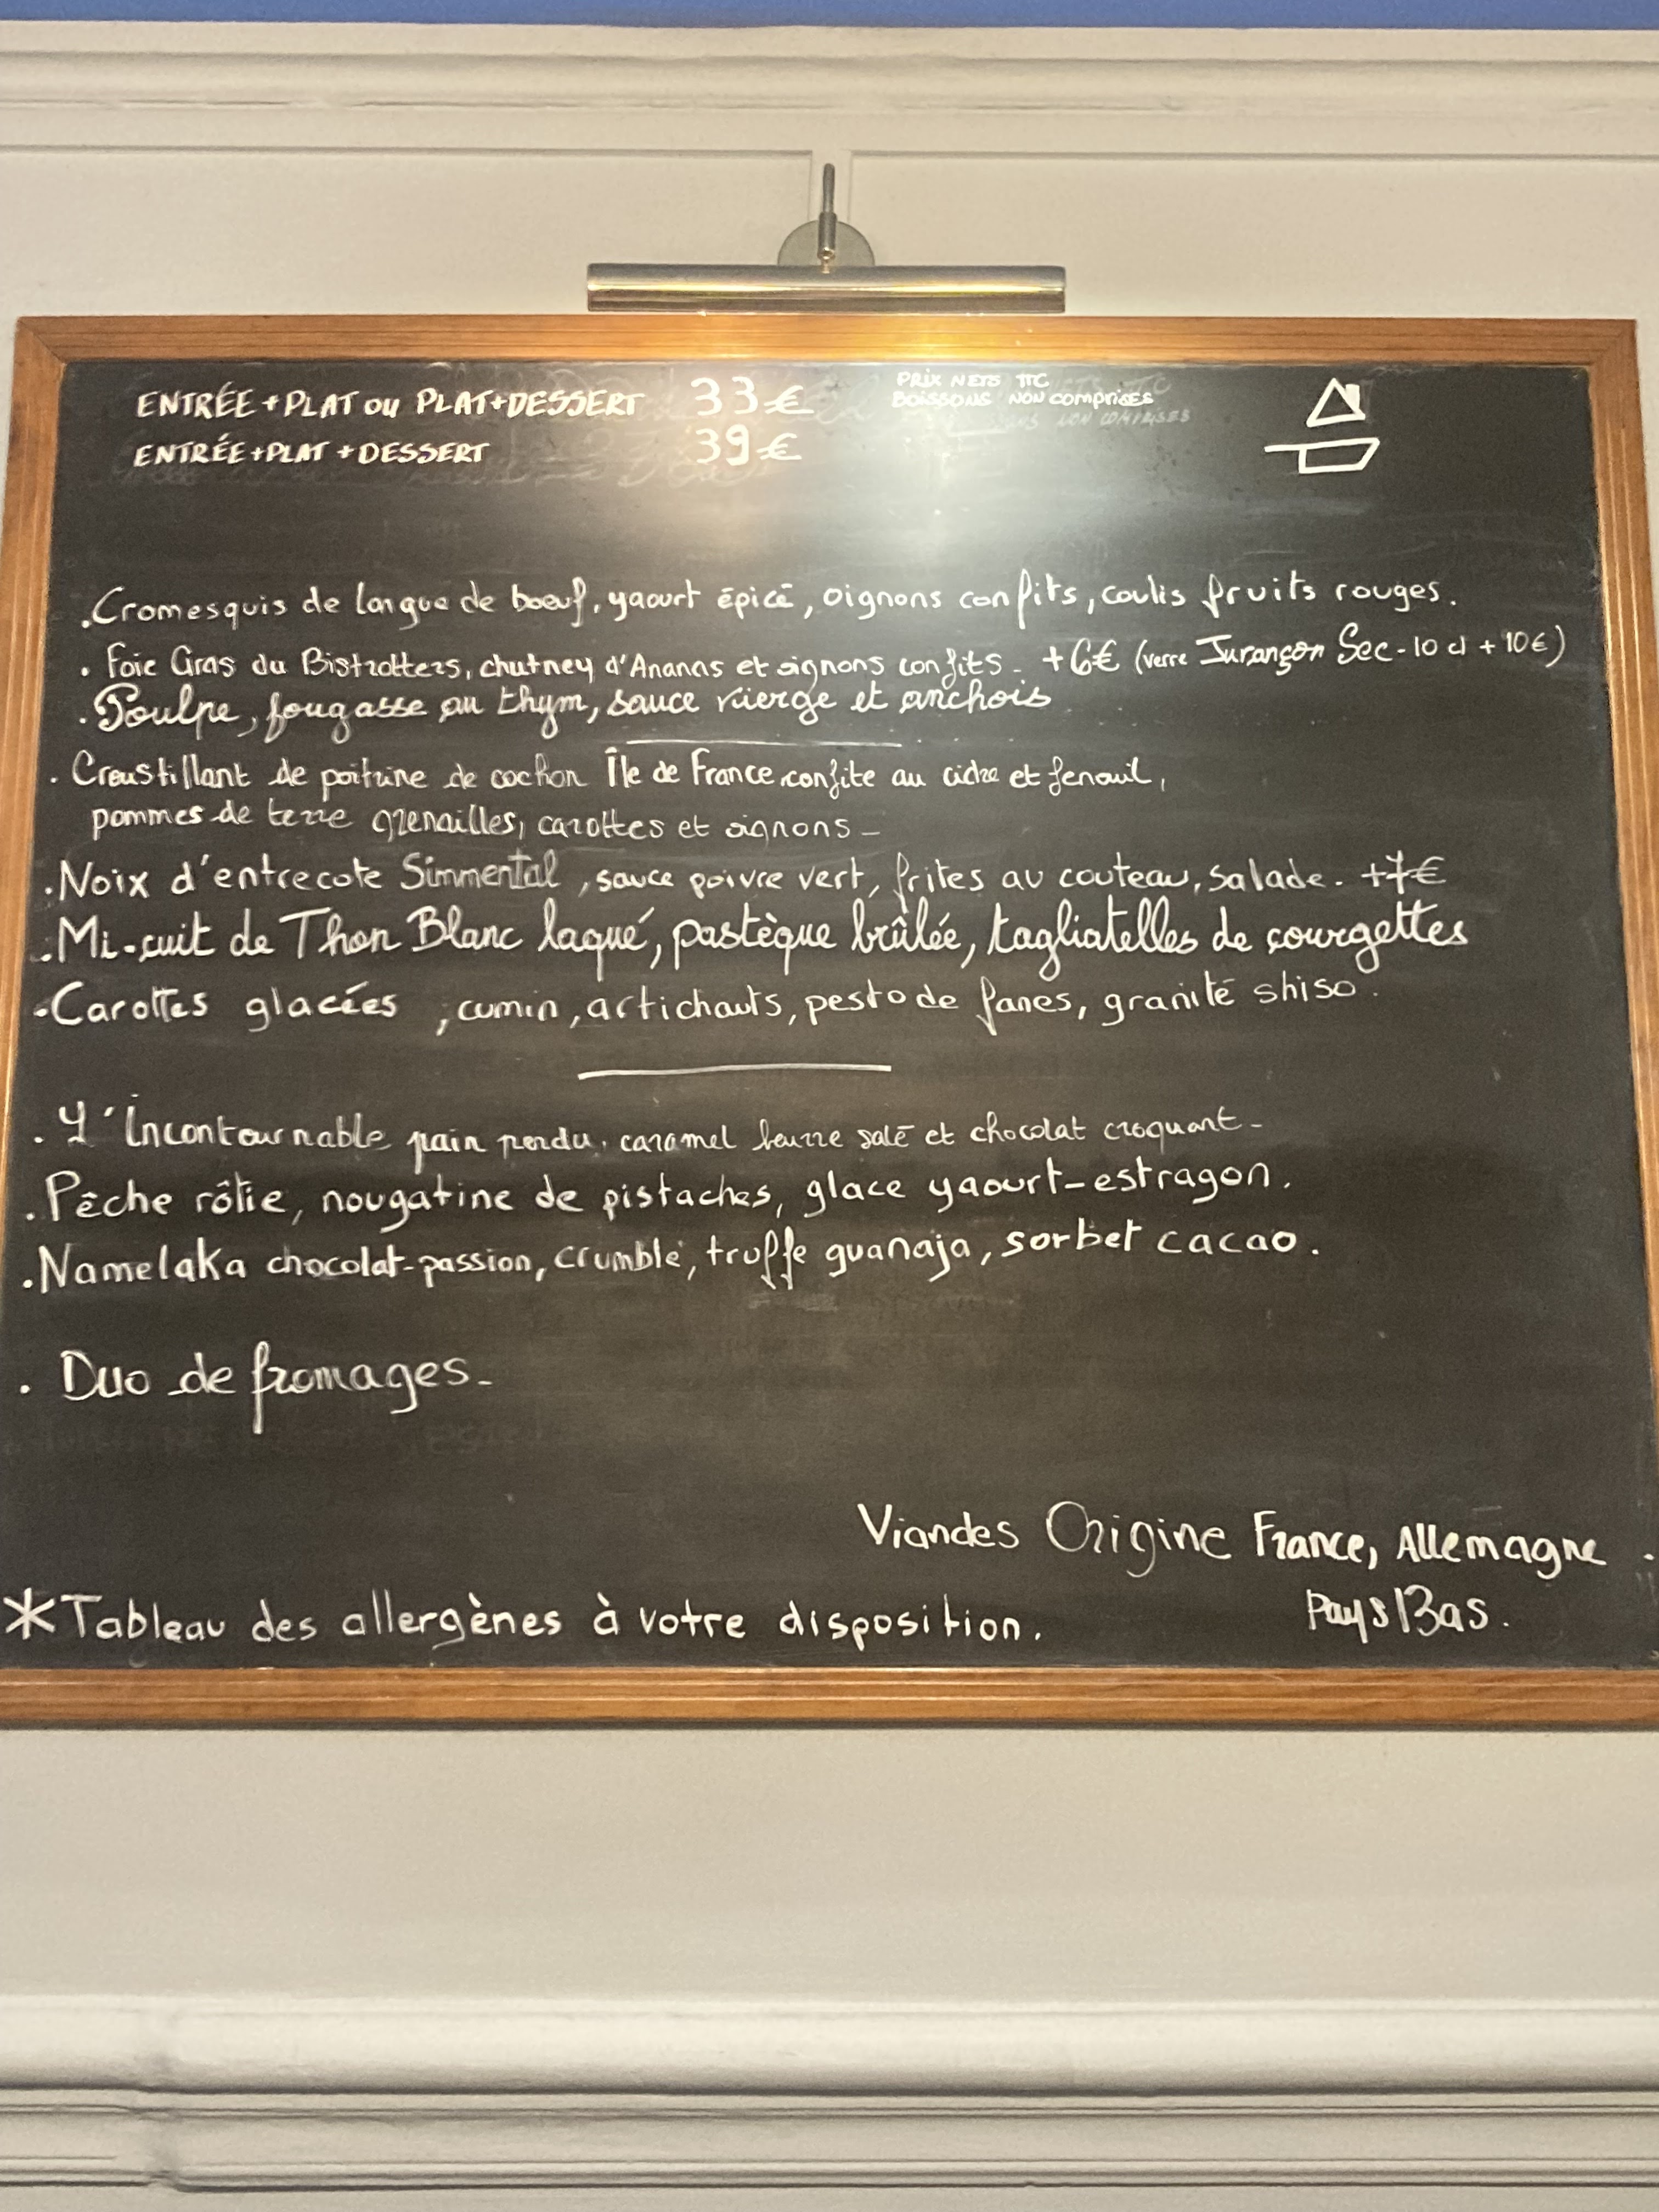 ENTRÉE + PLAT OU PLAT+DESSERT 33€
ENTRÉE+PLAT + DESSERT 39€
PRIX NETS TTC
BOISSONS NON comprises
.Cromesquis de langue de boeuf, yaourt épicé, oignons confits, coulis fruits rouges.
. Foie Gras du Bistrotters, chutney d'Ananas et oignons confits - +6€ (verre Jurançon Sec - 10 cl + 10€)
. Poulpe, fougasse au thym, sauce vierge et anchois
. Croustillant de poitrine de cochon Île de France confite au cidre et fenouil,
pommes de terre grenailles, carottes et oignons -
.Noix d'entrecote Simmental, sauce poivre vert, frites au couteau, salade. +7€
.Mi-cuit de Thon Blanc laqué, pastèque brûlée, tagliatelles de courgettes
-Carottes glacées, cumin, artichauts, pesto de fanes, granité shiso.
. L'Incontournable pain perdu, caramel beurre salé et chocolat croquant -
. Pêche rôtie, nougatine de pistaches, glace yaourt-estragon.
.Namelaka chocolat-passion, crumble, truffe guanaja, sorbet cacao.
. Duo de fromages -
Viandes Origine France, Allemagne.
Pays Bas.
*Tableau des allergènes à votre disposition.